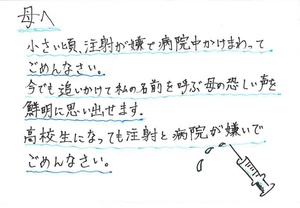 母へ
小さい頃、注射が嫌で病院中かけまわって
ごめんなさい。
今でも追いかけて私の名前を呼ぶ母の恐しい声を
鮮明に思い出せます。
高校生になっても注射と病院が嫌いで
ごめんなさい。